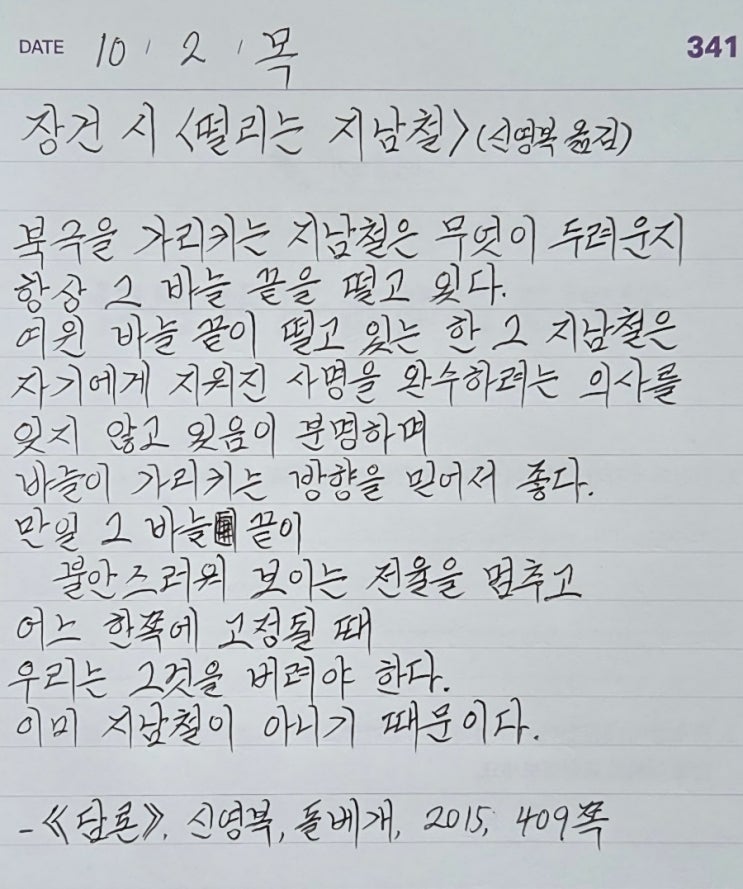 DATE 10 / 2 / 목 341
장건 시 <떨리는 지남철> (신영복 옮김)
북극을 가리키는 지남철은 무엇이 두려운지
항상 그 바늘 끝을 떨고 있다.
여윈 바늘 끝이 떨고 있는 한 그 지남철은
자기에게 지워진 사명을 완수하려는 의사를
잊지 않고 있음이 분명하며
바늘이 가리키는 방향을 믿어서 좋다.
만일 그 바늘 끝이
불안스러워 보이는 전율을 멈추고
어느 한쪽에 고정될 때
우리는 그것을 버려야 한다.
이미 지남철이 아니기 때문이다.
-《담론》, 신영복, 돌베개, 2015, 409쪽